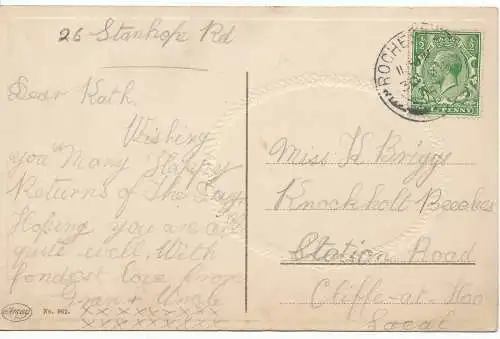 26 Stanhope Rd
Dear Kath,
Wishing
you "Many Happy
Returns of The Day"
Hoping you are all
quite well, With
fondest love from
Gran & Uncle
x x x x x x x x x x
x x x x x x x x x
No. 962.
ROCHE
½ ½
PENNY
Miss K Briggs
Knockholt Beeches
Station Road
Cliffe-at-Hoo
Local